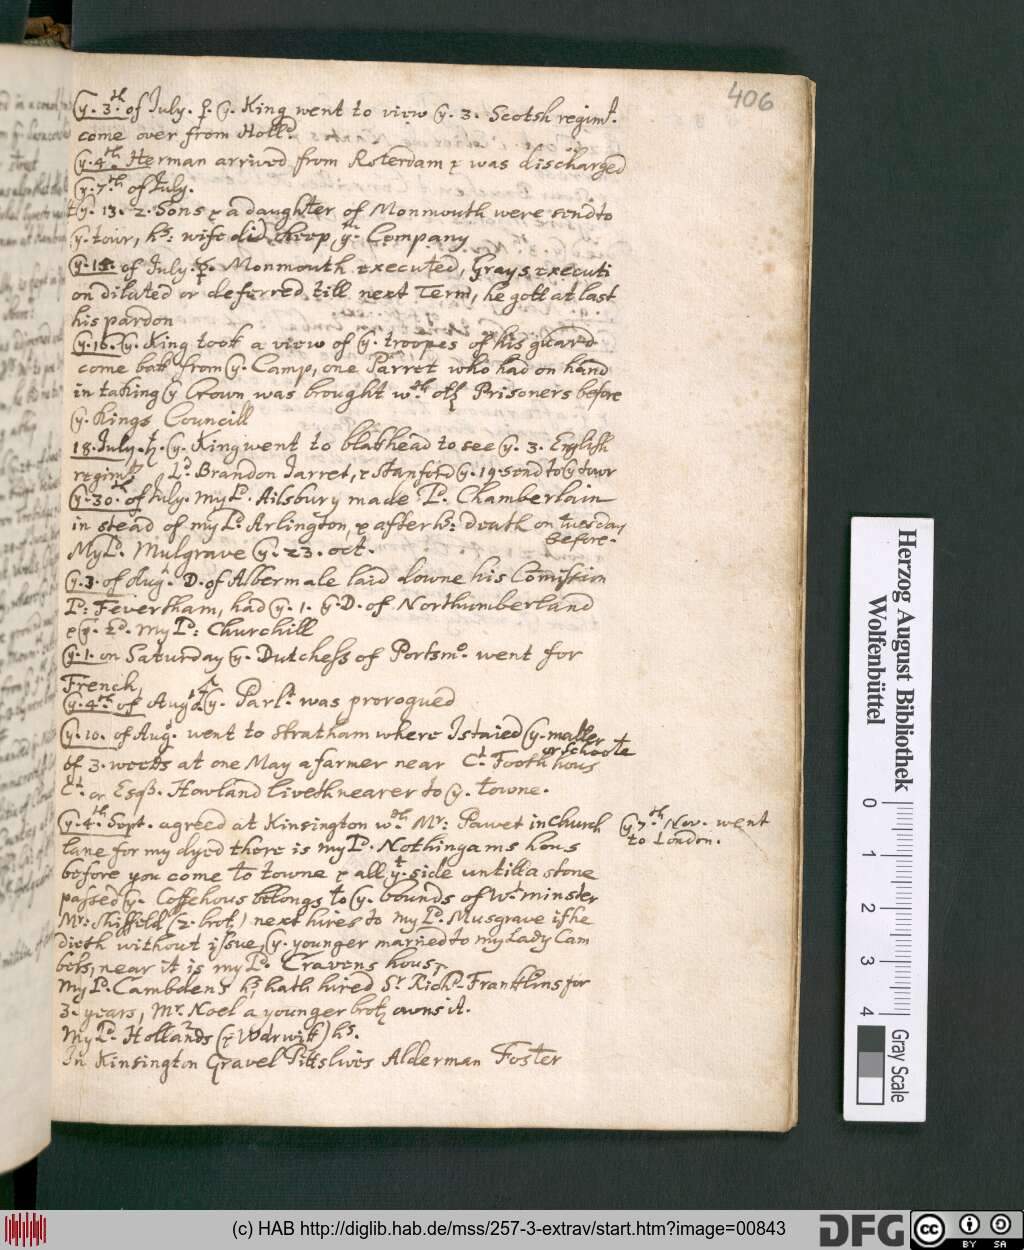 406
y. 3.th of July. ♀. y. King went to view y. 3. Scotsh regimt.
come over from Holld.
y. 4.th Herman arrived from Roterdam & was discharged
y. 7.th of July.
y. 13. 2. Sons & a daughter of Monmouth were send to
y. tour, hs: wife did keep ym. Company
y. 15. of July. ☿. Monmouth executed, Grays executi
on dilated or deferred till next Term, he gott at last
his pardon
y. 16. y. King took a view of y. troopes of his guard
come bak from y. Camp, one Parret who had on hand
in taking y Crown was brought wth oth Prisoners before
y. Kings Councill
18. July. ♄. y. King went to blakhead to see y. 3. English
regimts Ld. Brandon Jarret, & Stanford y. 19. send to y tour
y. 30.th of July. my Ld. Ailsbury made Ld. Chamberlain
in stead of my Ld. Arlington, & after hs: death on tuesday
before.
My Ld. Mulgrave y. 23. oct.
y. 3. of Aug. D. of Albermale laid downe his Comission
Ld: Feversham, had y. 1. y. D. of Northumberland
& y. 2d. my Ld: Churchill
y. 1. on Saturday y. Dutchess of Portsmo. went for
French
y. 4.th of Aug y. Parlt was prorogued
y. 10. of Aug. went to Stratham where I staied y. matter
of 3. weeks at one May a farmer near Ct. Footh hous
or Schoote
Ct. or Esqr. Howland liveth nearer to y. towne.
y. 4.th Sept. agreed at Kinsington wth Mr: Pawet in church
lane for my dyed there is my Ld. Nothingams hous
y 7.th Nov. went
to London.
before you come to towne & all yt. side untill a stone
passed y. Coffehous belongs to y. bounds of Wtminster
Mr: Shiffield (2. broth) next hires to my Ld. Musgrave if he
dieth without issue, y. younger married to my Lady Cam
bels, near it is my Ld. Cravens house
my Ld. Cambdens hs. hath hired Sr Richd. Franklins for
3. years, Mr. Noel a younger broth owns it.
My Ld. Hollands (& Warwik) hs.
In Kinsington Gravel Pitts lives Alderman Foster
Herzog August Bibliothek
Wolfenbüttel
0 1 2 3 4
Gray Scale
(c) HAB http://diglib.hab.de/mss/257-3-extrav/start.htm?image=00843
DFG
CC BY SA